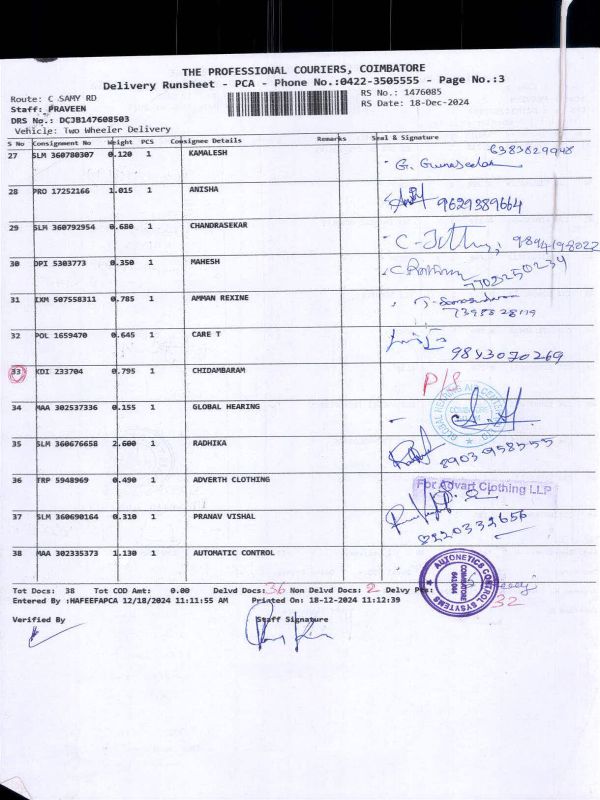 THE PROFESSIONAL COURIERS, COIMBATORE
Delivery Runsheet - PCA - Phone No.:0422-3505555 - Page No.:3
Route: C SAMY RD RS No.: 1476085
Staff: PRAVEEN RS Date: 18-Dec-2024
DRS No.: DCJB147608503
Vehicle: Two Wheeler Delivery
S No Consignment No Weight PCS Consignee Details Remarks Seal & Signature
27 SLM 360780307 0.120 1 KAMALESH
28 PRO 17252166 1.015 1 ANISHA 9629389664
29 SLM 360792954 0.680 1 CHANDRASEKAR
30 OPI 5303773 0.350 1 MAHESH 7708250234
31 IXM 507558311 0.785 1 AMMAN REXINE
32 POL 1659470 0.645 1 CARE T 9843070269
33 KDI 233704 0.795 1 CHIDAMBARAM
34 MAA 302537336 0.155 1 GLOBAL HEARING
35 SLM 360676658 2.600 1 RADHIKA 8903958555
36 TRP 5948969 0.490 1 ADVERTH CLOTHING For Advart Clothing LLP
37 SLM 360690164 0.310 1 PRANAV VISHAL
38 MAA 302335373 1.130 1 AUTOMATIC CONTROL
AUTONETICS CONTROL SYSTEMS
COIMBATORE
641 044
Tot Docs: 38 Tot COD Amt: 0.00 Delvd Docs: 36 Non Delvd Docs: 2 Delvy
32
Entered By :HAFEEFAPCA 12/18/2024 11:11:55 AM Printed On: 18-12-2024 11:12:39
Verified By Staff Signature